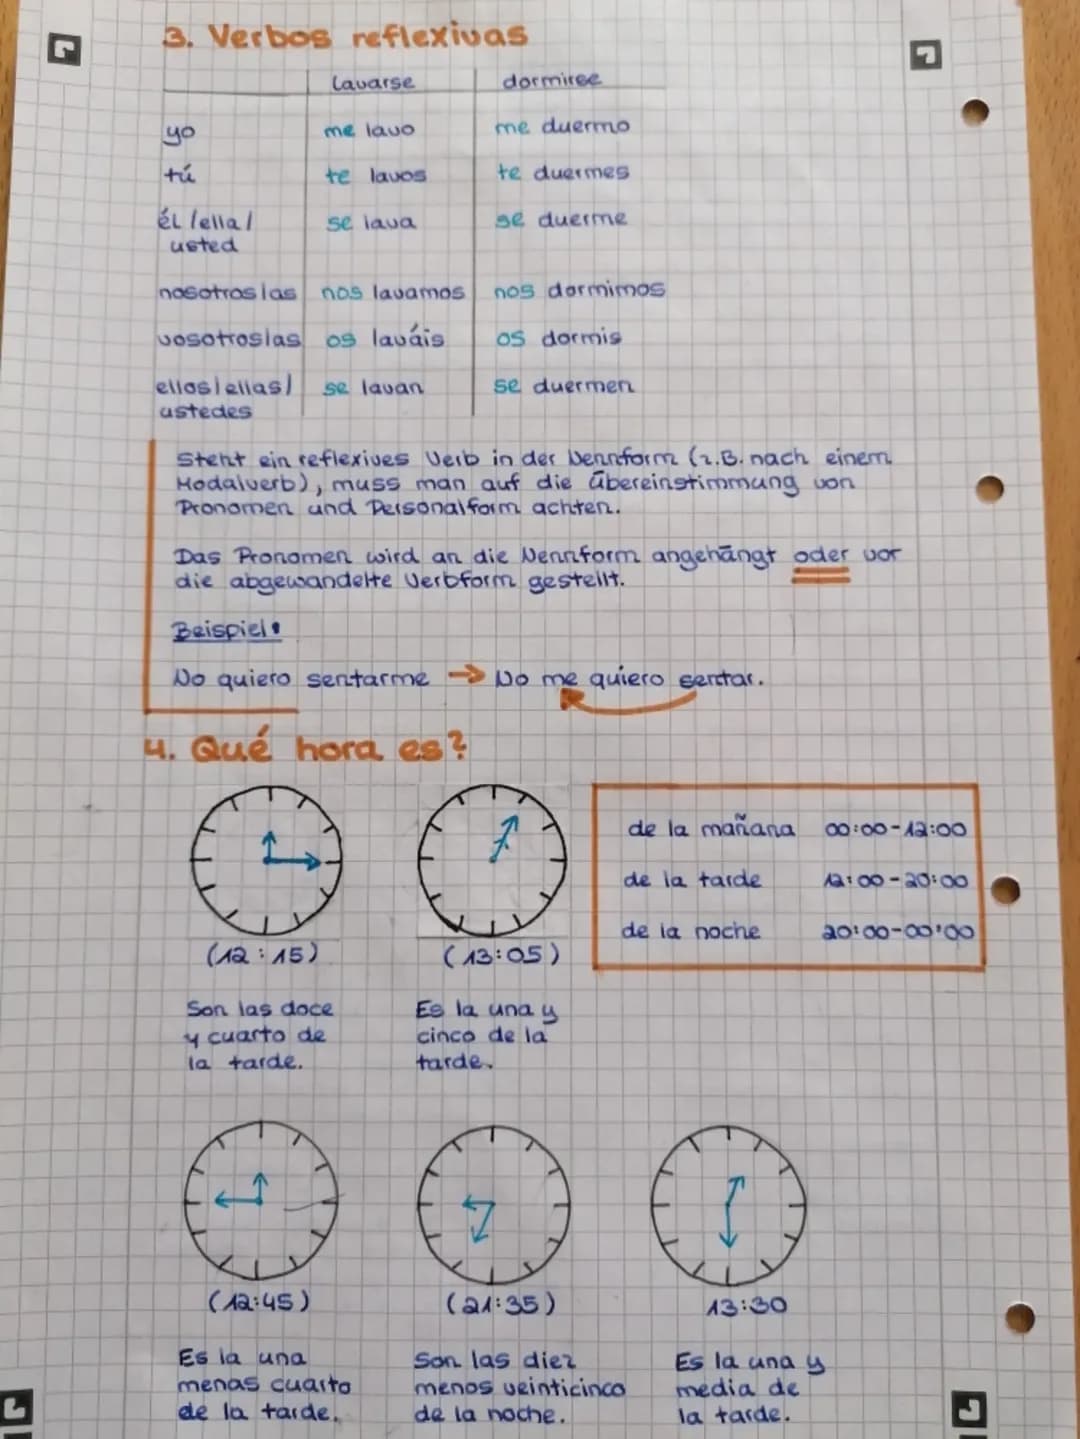 3. Verbos reflexivas
lavarse dormirse
yo me lavo me duermo
tú te lavas te duermes
él/ella/ se lava se duerme
usted
nosotros/as nos lavamos nos dormimos
vosotros/as os laváis os dormis
ellos/ellas/ se lavan se duermen
ustedes
Steht ein reflexives Verb in der Nennform (z.B. nach einem
Modalverb), muss man auf die Übereinstimmung von
Pronomen und Personalform achten.
Das Pronomen wird an die Nennform angehängt oder vor
die abgewandelte Verbform gestellt.
Beispiel:
No quiero sentarme → No me quiero sentar.
4. Qué hora es?
de la mañana 00:00-12:00
de la tarde 12:00-20:00
de la noche 20:00-00:00
(12:15) (13:05)
Son las doce
y cuarto de
la tarde.
Es la una y
cinco de la
tarde.
(12:45) (21:35) 13:30
Es la una
menas cuarto
de la tarde.
Son las diez
menos veinticinco
de la noche.
Es la una y
media de
la tarde.